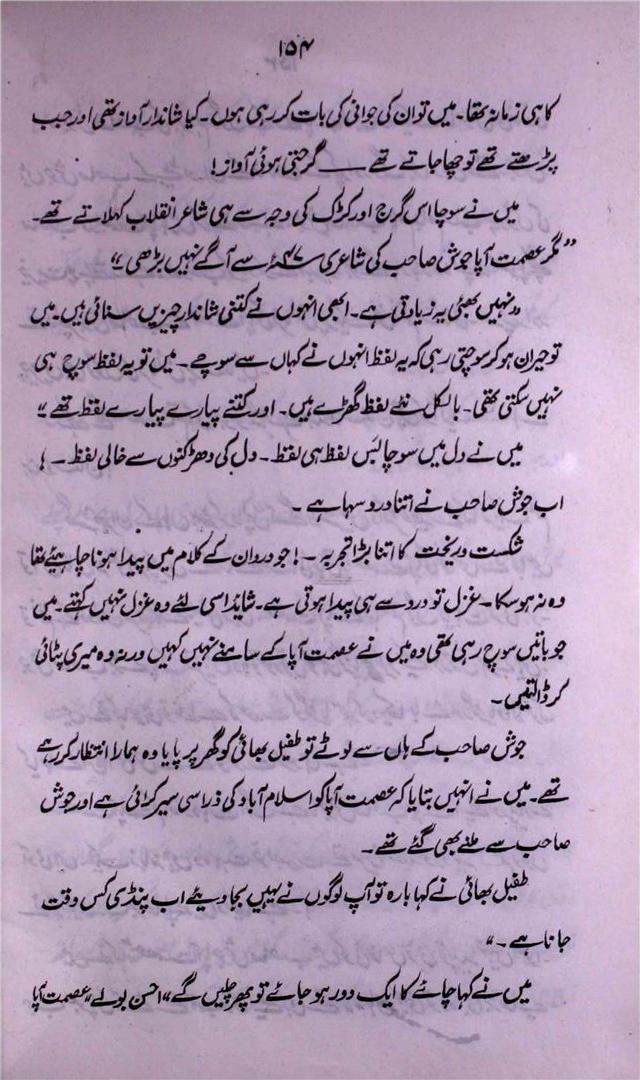 ۱۵۴
کا ہی زمانہ تھا۔ میں تو ان کی جوانی کی بات کر رہی ہوں۔ کیا شاندار آواز تھی اور جب
پڑھتے تھے تو چھا جاتے تھے —— گرجتی ہوئی آواز!
میں نے سوچا اس گرج اور کڑک کی وجہ سے ہی شاعر انقلاب کہلاتے تھے۔
”مگر عصمت آپا جوش صاحب کی شاعری ۴۷ء سے آگے نہیں بڑھی“
”نہیں بھئی یہ زیادتی ہے۔ ابھی انہوں نے کتنی شاندار چیزیں سنائی ہیں۔ میں
تو حیران ہو کر سوچتی رہی کہ یہ لفظ انہوں نے کہاں سے سوچے۔ میں تو یہ لفظ سوچ ہی
نہیں سکتی تھی۔ بالکل نئے لفظ گھڑے ہیں۔ اور کتنے پیارے پیارے لفظ تھے“
میں نے دل میں سوچا بس لفظ ہی لفظ۔ دل کی دھڑکنوں سے خالی لفظ۔!
اب جوش صاحب نے اتنا درد سہا ہے۔
شکست و ریخت کا اتنا بڑا تجربہ۔! جو درد ان کے کلام میں پیدا ہونا چاہیئے تھا
وہ نہ ہو سکا۔ غزل تو درد سے ہی پیدا ہوتی ہے۔ شاید اسی لئے وہ غزل نہیں کہتے۔ میں
جو باتیں سوچ رہی تھی وہ میں نے عصمت آپا کے سامنے نہیں کہیں ورنہ وہ میری پٹائی
کر ڈالتیں۔
جوش صاحب کے ہاں سے لوٹے تو طفیل بھائی کو گھر پر پایا وہ ہمارا انتظار کر رہے
تھے۔ میں نے انہیں بتایا کہ عصمت آپا کو اسلام آباد کی ذرا سی سیر کرائی ہے اور جوش
صاحب سے ملنے بھی گئے تھے۔
طفیل بھائی نے کہا بارہ تو آپ لوگوں نے یہیں بجا دیئے اب پنڈی کس وقت
جانا ہے۔“
میں نے کہا چائے کا ایک دور ہو جائے تو پھر چلیں گے“ احسن بولے ”عصمت آپا